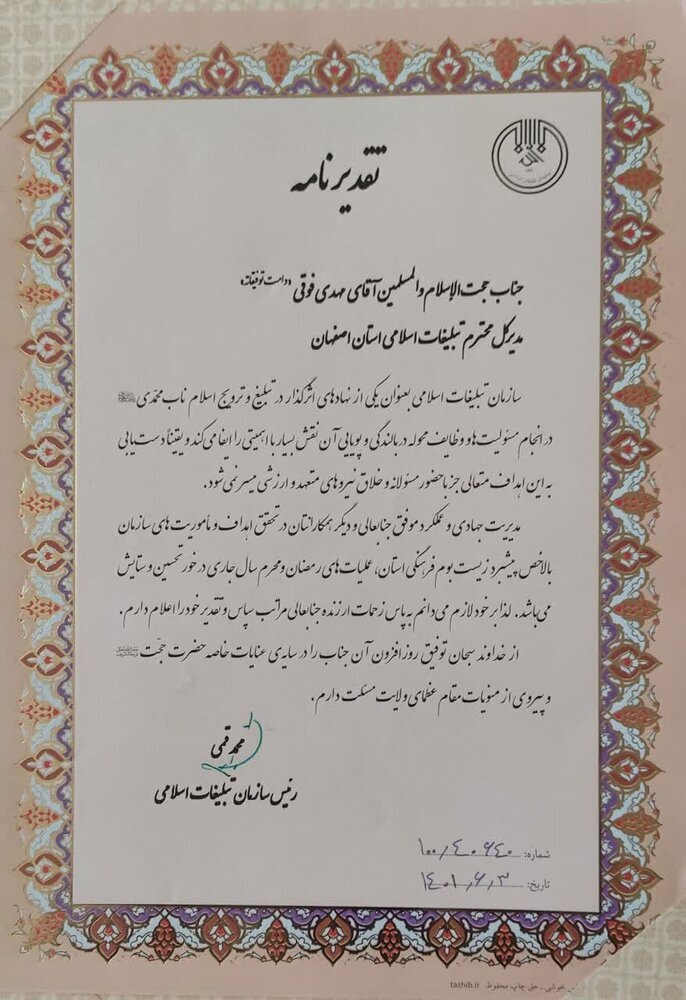 تقدیرنامه
جناب حجت الاسلام والمسلمین آقای مهدی فوقی «دامت توفیقاته»
مدیرکل محترم تبلیغات اسلامی استان اصفهان
سازمان تبلیغات اسلامی بعنوان یکی از نهادهای اثرگذار در تبلیغ و ترویج اسلام ناب محمدی
در انجام مسئولیت‌ها و وظایف محوله در بالندگی و پویایی آن نقش بسیار با اهمیتی را ایفا می‌کند و یقیناً دست‌یابی
به این اهداف متعالی جز با حضور مسئولانه و خلاق نیروهای متعهد و ارزشی میسر نمی‌شود.
مدیریت جهادی و عملکرد موفق جنابعالی و دیگر همکارانتان در تحقق اهداف و مأموریت‌های سازمان
بالاخص پیشبرد زیست بوم فرهنگی استان، عملیات‌های رمضان و محرم سال جاری در خور تحسین و ستایش
می‌باشد. لذا بر خود لازم می‌دانم به پاس زحمات ارزنده جنابعالی مراتب سپاس و تقدیر خود را اعلام دارم.
از خداوند سبحان توفیق روزافزون آن جناب را در سایه‌ی عنایات خاصه حضرت حجّت
و پیروی از منویات مقام عظمای ولایت مسئلت دارم.
محمد قمی
رئیس سازمان تبلیغات اسلامی
شماره: ۱۰۰/۴۰۶۴۰
تاریخ: ۱۴۰۱/۶/۳
خوشی - حق چاپ محفوظ tazhib.ir